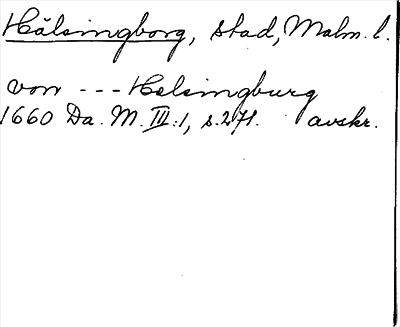 Hälsingborg, stad, Malm. l.
von --- Helsingburg
1660 Da. M. III:1, s. 271. avskr.